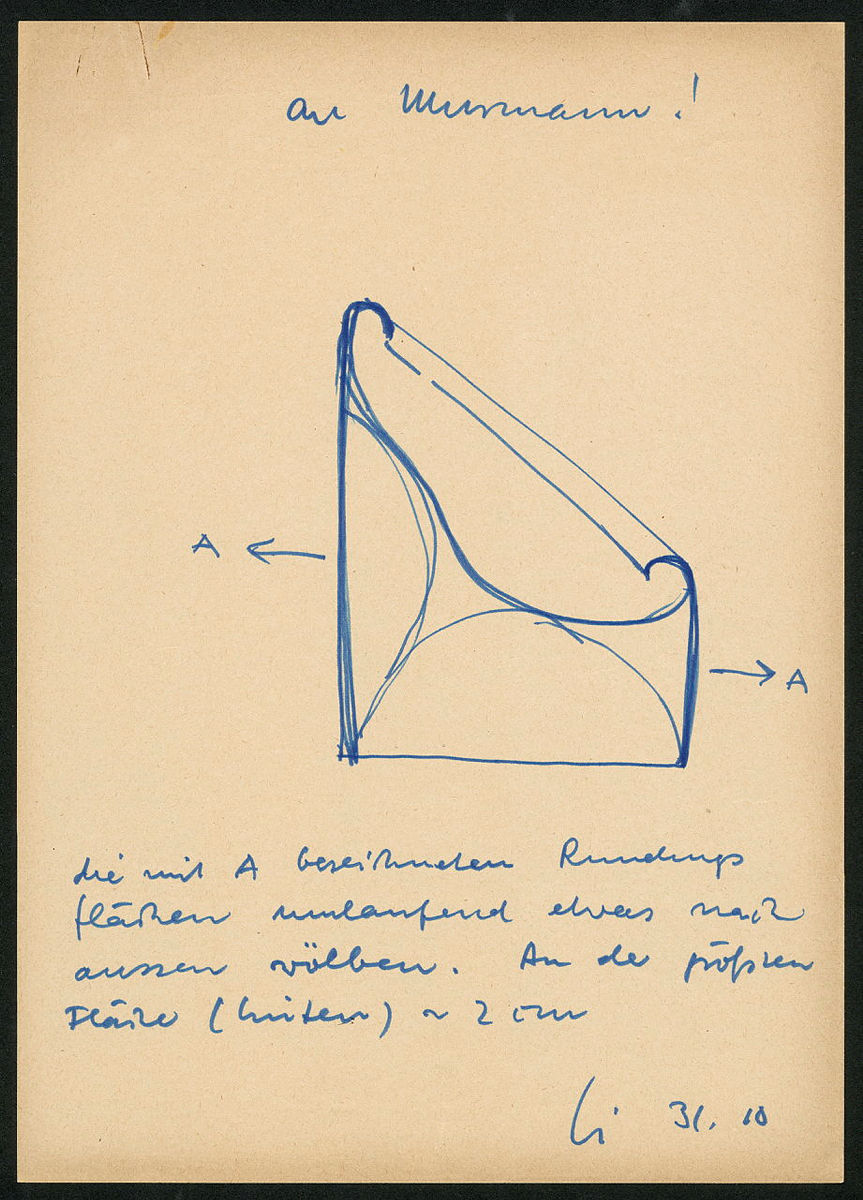 an Murmann!
A
A
die mit A bezeichneten Rundungs
flächen umlaufend etwas nach
aussen wölben. An der größten
Fläche (hinten) ~ 2 cm
31. 10